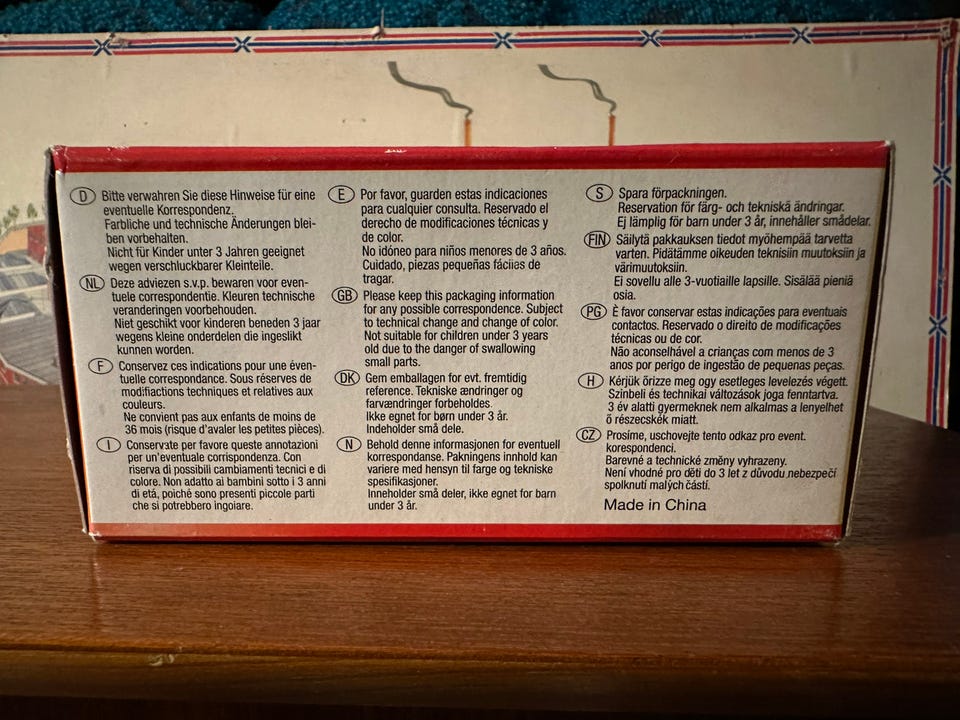 D Bitte verwahren Sie diese Hinweise für eine
eventuelle Korrespondenz.
Farbliche und technische Änderungen blei-
ben vorbehalten.
Nicht für Kinder unter 3 Jahren geeignet
wegen verschluckbarer Kleinteile.
NL Deze adviezen s.v.p. bewaren voor even-
tuele correspondentie. Kleuren technische
veranderingen voorbehouden.
Niet geschikt voor kinderen beneden 3 jaar
wegens kleine onderdelen die ingeslikt
kunnen worden.
F Conservez ces indications pour une éven-
tuelle correspondance. Sous réserves de
modifiactions techniques et relatives aux
couleurs.
Ne convient pas aux enfants de moins de
36 mois (risque d'avaler les petites pièces).
I Conservate per favore queste annotazioni
per un'eventuale corrispondenza. Con
riserva di possibili cambiamenti tecnici e di
colore. Non adatto ai bambini sotto i 3 anni
di etá, poiché sono presenti piccole parti
che si potrebbero ingoiare.
E Por favor, guarden estas indicaciones
para cualquier consulta. Reservado el
derecho de modificaciones técnicas y
de color.
No idóneo para niños menores de 3 años.
Cuidado, piezas pequeñas fáciies de
tragar.
GB Please keep this packaging information
for any possible correspondence. Subject
to technical change and change of color.
Not suitable for children under 3 years
old due to the danger of swallowing
small parts.
DK Gem emballagen for evt. fremtidig
reference. Tekniske ændringer og
farvændringer forbeholdes.
Ikke egnet for børn under 3 år.
Indeholder små dele.
N Behold denne informasjonen for eventuell
korrespondanse. Pakningens innhold kan
variere med hensyn til farge og tekniske
spesifikasjoner.
Inneholder små deler, ikke egnet for barn
under 3 år.
S Spara förpackningen.
Reservation för färg- och tekniskä ändringar.
Ej lämplig för barn under 3 år, innehåller smådelar.
FIN Säilytä pakkauksen tiedot myöhempää tarvetta
varten. Pidätämme oikeuden teknisiin muutoksiin ja
värimuutoksiin.
Ei sovellu alle 3-vuotiaille lapsille. Sisälää pieniä
osia.
PG É favor conservar estas indicações para eventuais
contactos. Reservado o direito de modificações
técnicas ou de cor.
Não aconselhável a crianças com menos de 3
anos por perigo de ingestão de pequenas peças.
H Kérjük őrizze meg ogy esetleges levelezés végett.
Szinbeli és technikai változások joga fenntartva.
3 év alatti gyermeknek nem alkalmas a lenyelhet
ő részecskék miatt.
CZ Prosíme, uschovejte tento odkaz pro event.
korespondenci.
Barevné a technické změny vyhrazeny.
Není vhodné pro děti do 3 let z důvodu nebezpečí
spolknutí malých částí.
Made in China